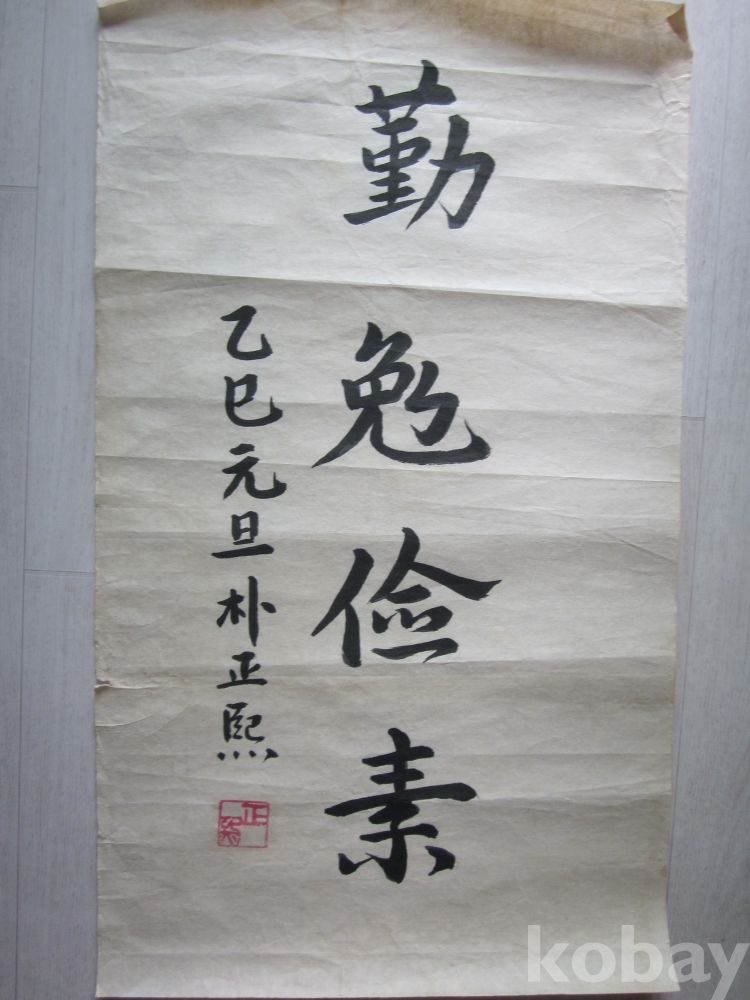 勤勉儉素
乙巳元旦朴正熙
正熙
kobay